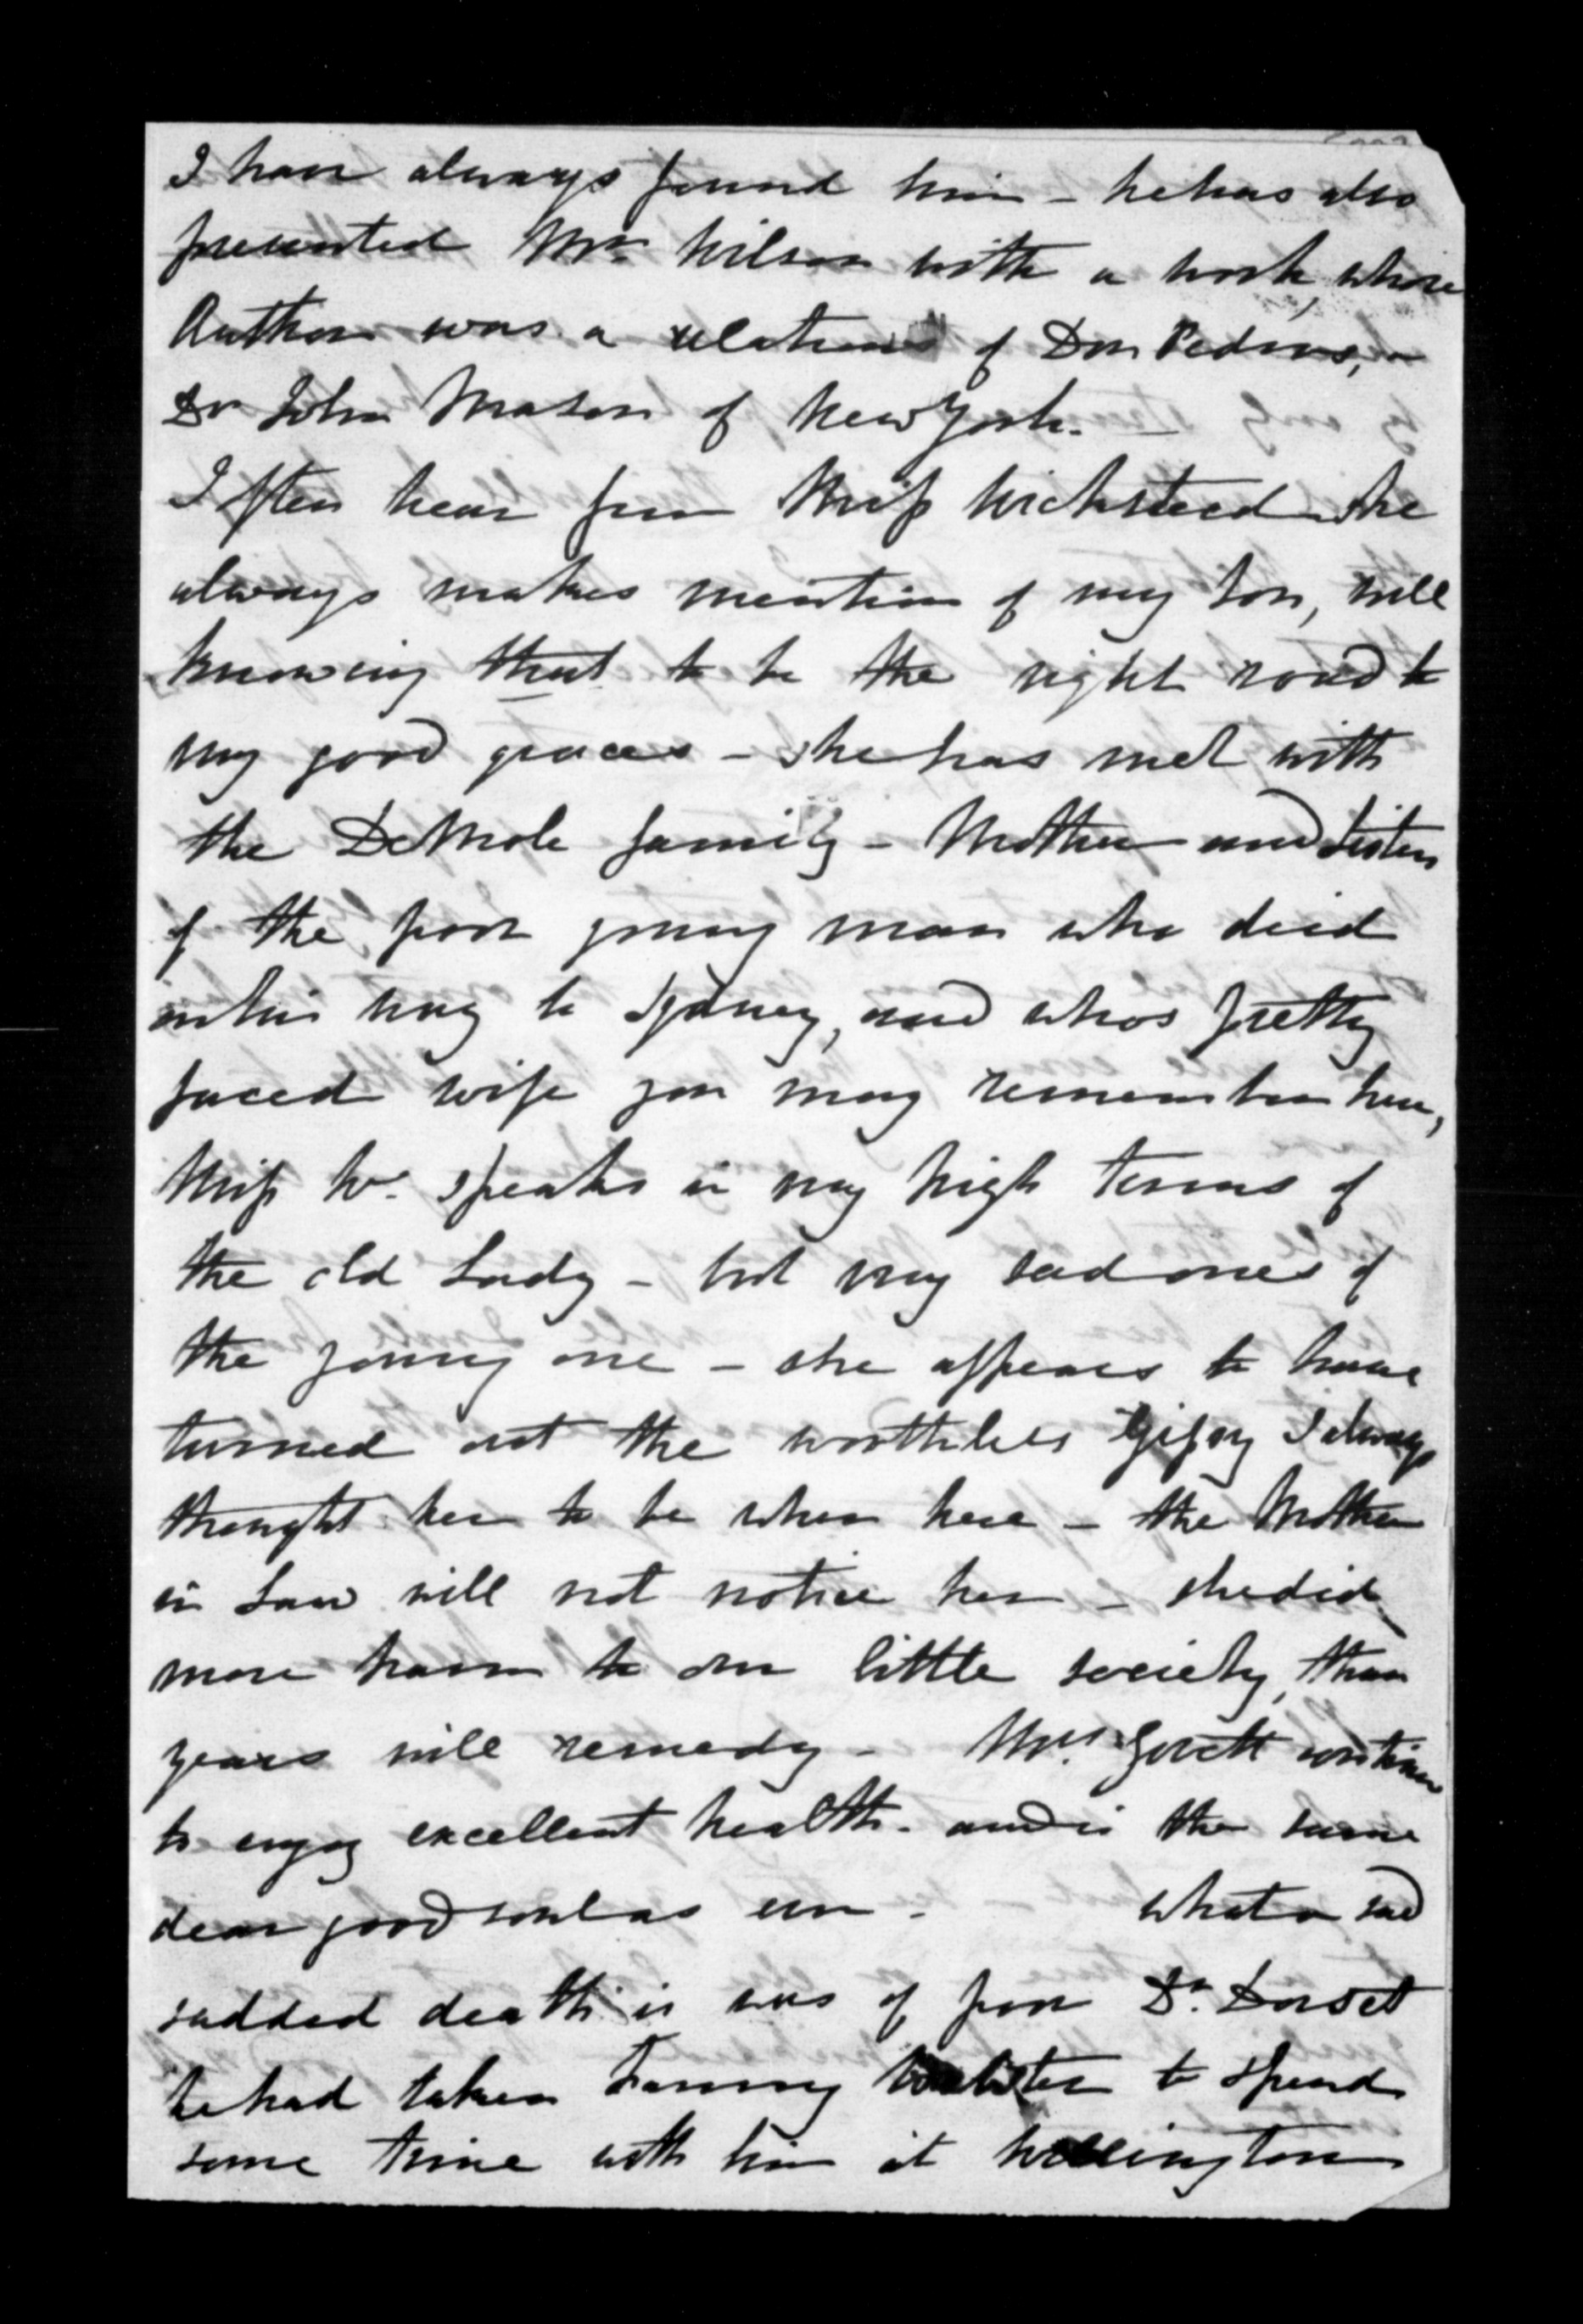 I have always found him – he has also
presented Mrs. Wilson with a work, whose
Author was a relation of Don Pedros, –
Dr John Mason of New York. –
I often hear from Miss Wicksteed she
always makes mention of my Son, well
knowing that to be the right road to
my good graces – she has met with
the DeMole family – Mother and Sisters
of the poor young man who died
on his way to Sydney, and whos pretty
faced wife you may remember here,
Miss W. speaks in very high terms of
the old Lady – but very sad ones of
the young one – she appears to have
turned out the worthless Gipsy I always
thought her to be when here – the Mother
in Law will not notice her – she did
more harm to our little society, than
years will remedy – Mrs. Govett continues
to enjoy excellent health. and is the same
dear good soul as ever – what a sad
sudded death is was of poor Dr. Dorset
he had taken Fanny to spend
some time with him at Wellington